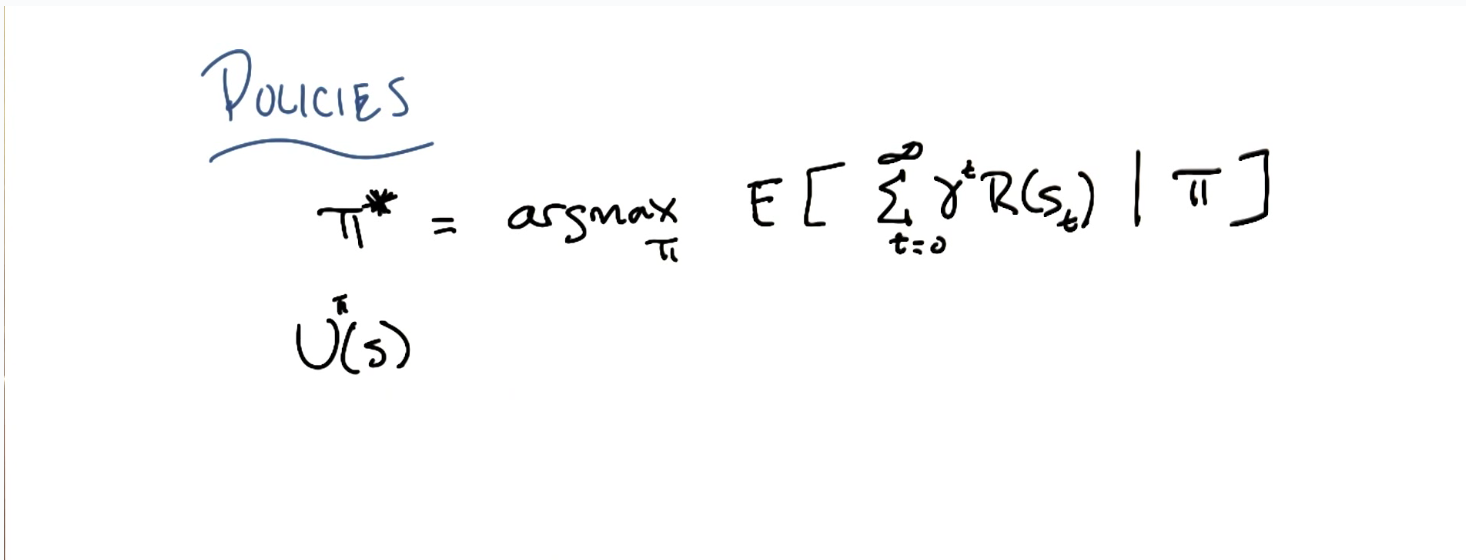 POLICIES
π* = argmax_π E[ ∑_{t=0}^{∞} γ^t R(s_t) | π ]
U^π(s)